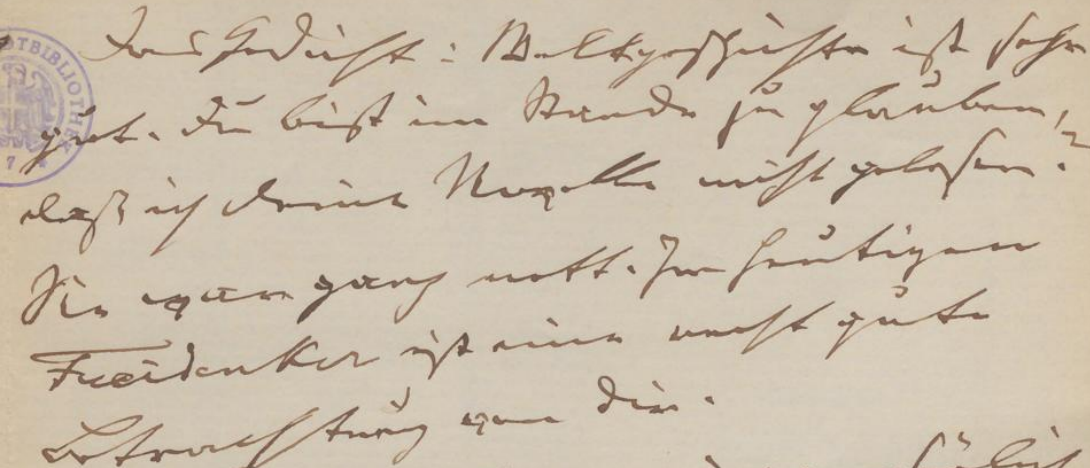 Das Gedicht: Weltgeschichte ist sehr
gut. Du bist im Stande zu glauben,
daß ich Deine Novelle nicht gelesen?
Sie war ganz nett. Im heutigen
Freidenker ist eine recht gute
Betrachtung von Dir.